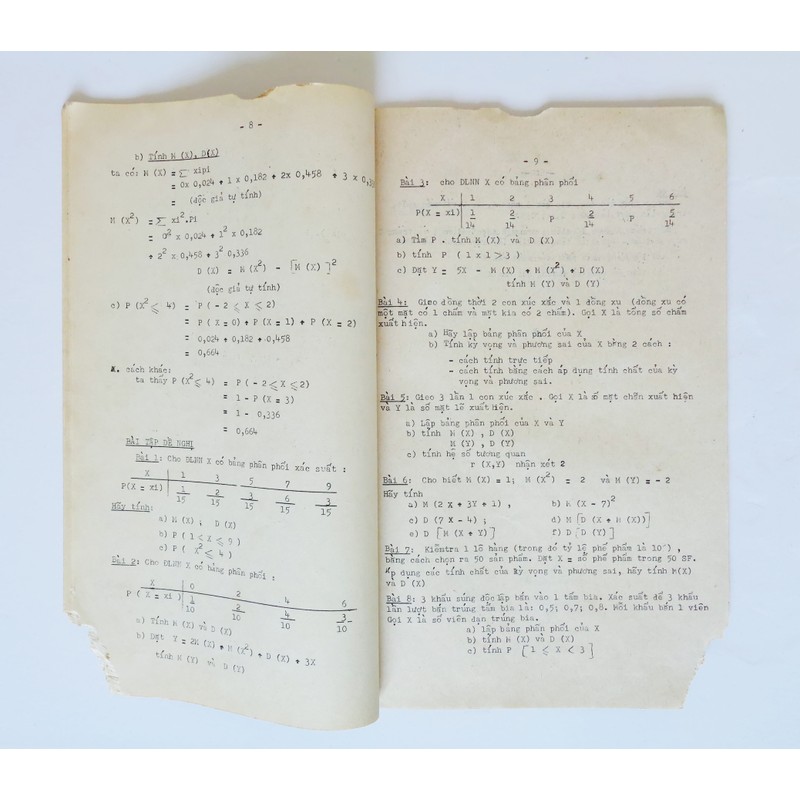 - 8 -
b) Tính M (X), D(X)
ta có: M (X) = ∑ xipi
= 0x 0,024 + 1 x 0,182 + 2x 0,458 + 3 x 0,33
= (độc giả tự tính)
M (X²) = ∑ xi².Pi
= 0² x 0,024 + 1² x 0,182
+ 2² x 0,458 + 3² 0,336
D (X) = M (X²) - [M (X)]²
(độc giả tự tính)
c) P (X² ⩽ 4) = P( - 2 ⩽ X ⩽ 2)
= P( X = 0) + P(X = 1) + P (X = 2)
= 0,024 + 0,182 + 0,458
= 0,664
X. cách khác:
ta thấy P (X² ⩽ 4) = P( - 2 ⩽ X ⩽ 2)
= 1 - P(X = 3)
= 1 - 0,336
= 0,664
BÀI TẬP ĐỀ NGHỊ
Bài 1: Cho ĐLNN X có bảng phân phối xác suất :
X 1 3 5 7 9
P(X = xi) 1/15 2/15 3/15 6/15 3/15
Hãy tính:
a) M (X) ; D (X)
b) P ( 1 < X ⩽ 5 )
c) P ( X² ⩽ 4 )
Bài 2: Cho ĐLNN X có bảng phân phối :
X 0 2 4 6
P ( X = xi ) 1/10 2/10 4/10 3/10
a) Tính M (X) và D (X)
b) Đặt Y = 2X (X) + M (X²) + D (X) + 3X
tính M (Y) và D (Y)
- 9 -
Bài 3: cho ĐLNN X có bảng phân phối
X 1 2 3 4 5 6
P(X = xi) 1/14 2/14 P 2/14 P 5/14
a) Tìm P . tính M (X) và D (X)
b) tính P ( 1 x 1 > 3 )
c) Đặt Y = 5X - M (X) + M (X²) + D (X)
tính M (Y) và D (Y)
Bài 4: Gieo đồng thời 2 con xúc xắc và 1 đồng xu (đồng xu có
một mặt có 1 chấm và mặt kia có 2 chấm). Gọi X là tổng số chấm
xuất hiện.
a) Hãy lập bảng phân phối của X
b) Tính kỳ vọng và phương sai của X bằng 2 cách :
- cách tính trực tiếp
- cách tính bằng cách áp dụng tính chất của kỳ
vọng và phương sai.
Bài 5: Gieo 3 lần 1 con xúc xắc . Gọi X là số mặt chẵn xuất hiện
và Y là số mặt lẻ xuất hiện.
a) Lập bảng phân phối của X và Y
b) tính M (X) , D (X)
M (Y) , D (Y)
c) tính hệ số tương quan
r (X,Y) nhận xét 2
Bài 6: Cho biết M (X) = 1; M (X²) = 2 và M (Y) = - 2
Hãy tính
a) M (2 X + 3Y + 1) , b) M (X - 7)²
c) D (7 X - 4) ; d) M [D (X + M (X))]
e) D [M (X + Y)] f) D [D (Y)]
Bài 7: Kiểm tra 1 lô hàng (trong đó tỷ lệ phế phẩm là 10%) ,
bằng cách chọn ra 50 sản phẩm. Đặt X = số phế phẩm trong 50 SF.
Áp dụng các tính chất của kỳ vọng và phương sai, hãy tính M(X)
và D (X)
Bài 8: 3 khẩu súng độc lập bắn vào 1 tấm bia. Xác suất để 3 khẩu
lần lượt bắn trúng tấm bia là: 0,5; 0,7; 0,8. Mỗi khẩu bắn 1 viên
Gọi X là số viên đạn trúng bia.
a) lập bảng phân phối của X
b) tính M (X) và D (X)
c) tính P [1 ⩽ X < 3]